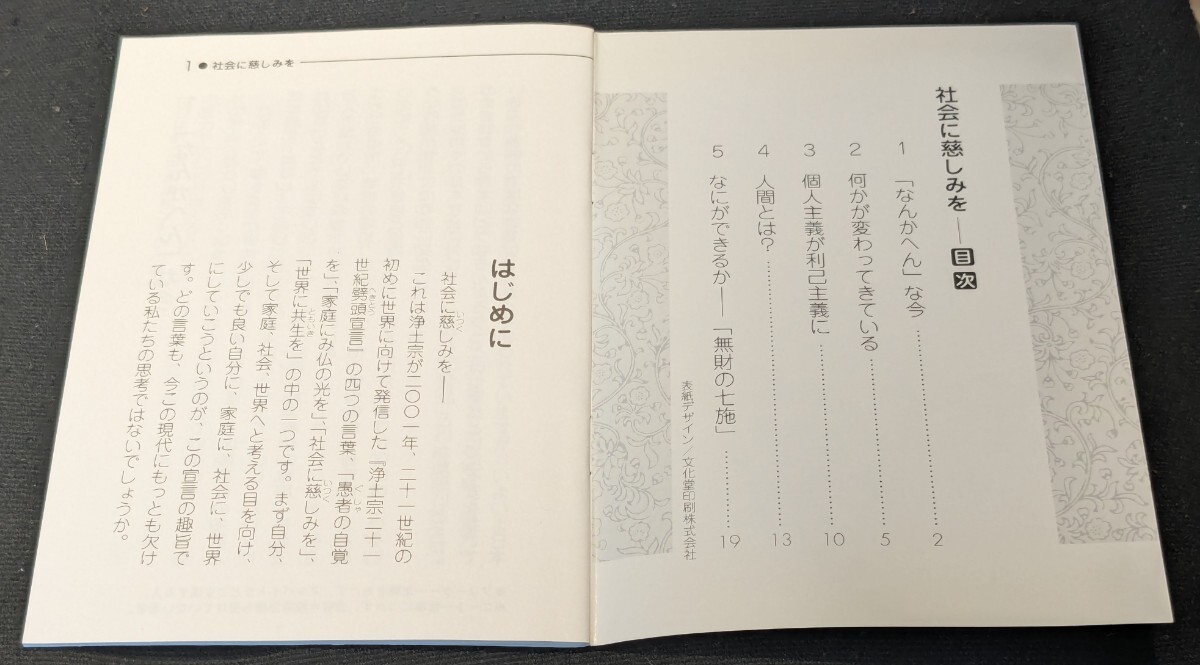 社会に慈しみを──目次
1 「なんかへん」な今 ………… 2
2 何かが変わってきている ………… 5
3 個人主義が利己主義に ………… 10
4 人間とは？ ………… 13
5 なにができるか──「無財の七施」 ………… 19
表紙デザイン／文化堂印刷株式会社
1 ● 社会に慈しみを
はじめに
社会に慈しみを──
いつく
これは浄土宗が二〇〇一年、二十一世紀の
初めに世界に向けて発信した『浄土宗二十一
世紀劈頭宣言』の四つの言葉、「愚者の自覚
へきとう
ぐしゃ
を」、「家庭にみ仏の光を」、「社会に慈しみを」、
いつく
「世界に共生を」の中の一つです。まず自分、
ともいき
そして家庭、社会、世界へと考える目を向け、
少しでも良い自分に、家庭に、社会に、世界
にしていこうというのが、この宣言の趣旨で
す。どの言葉も、今この現代にもっとも欠け
ている私たちの思考ではないでしょうか。